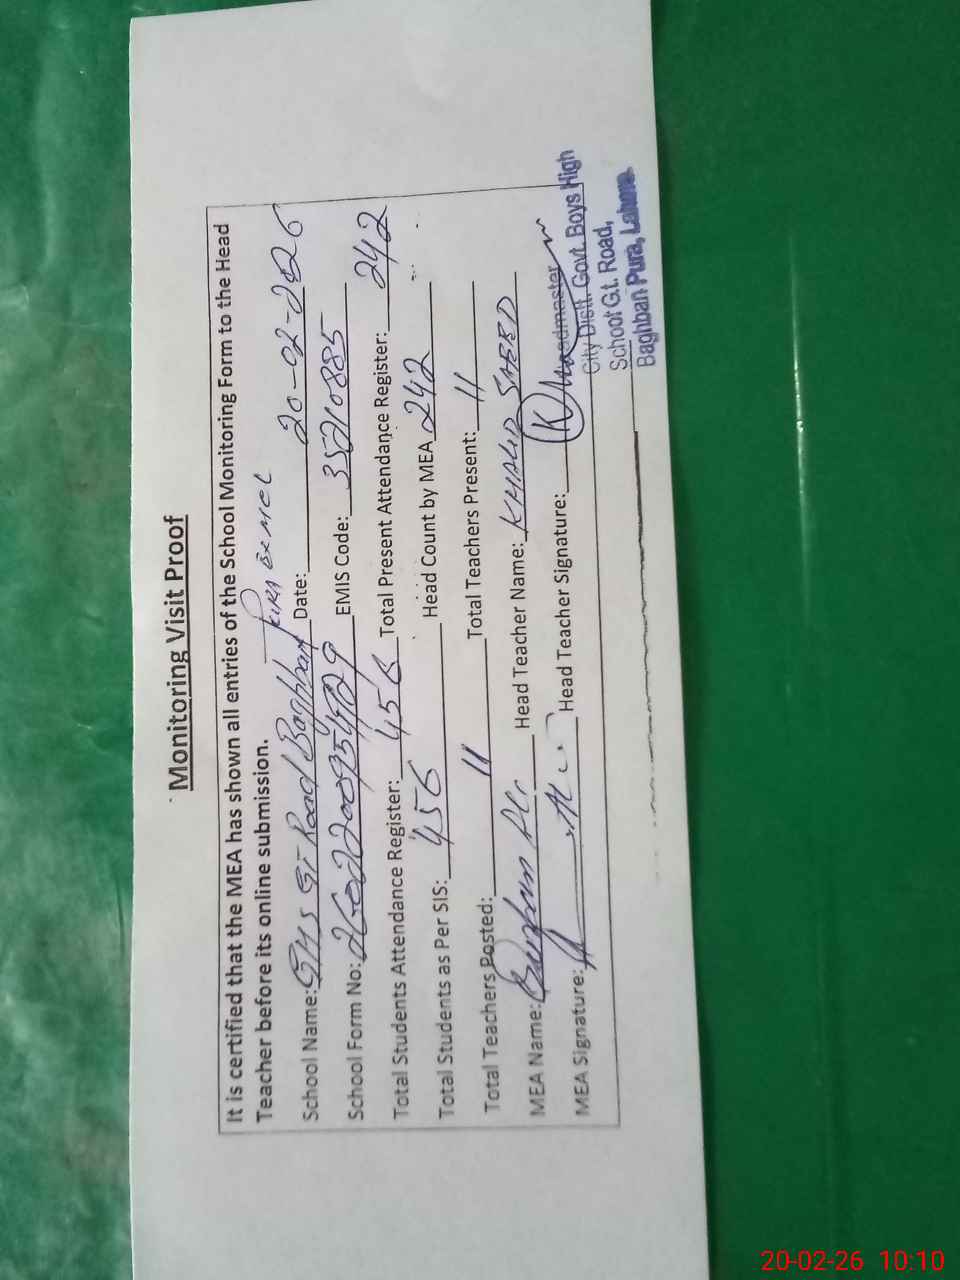 Monitoring Visit Proof
It is certified that the MEA has shown all entries of the School Monitoring Form to the Head
Teacher before its online submission.
School Name: GHS GT Road Baghban Pura Date: 20-02-2026
School Form No: EMIS Code: 35210885
Total Students Attendance Register: 456 Total Present Attendance Register: 242
Total Students as Per SIS: 456 Head Count by MEA 242
Total Teachers Posted: 11 Total Teachers Present: 11
MEA Name: Head Teacher Name: KHALID SAEED
MEA Signature: Head Teacher Signature:
Headmaster
City Distt. Govt. Boys High
School G.t. Road,
Baghban Pura, Lahore.
20-02-26 10:10